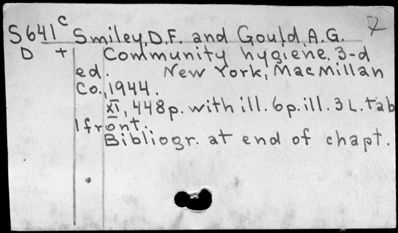 S641c Smiley, D.F. and Gould, A.G. 7
D + Community hygiene. 3-d
ed. New York, MacMillan
Co., 1944.
XI, 448p. with ill. 6p. ill. 3L. tab
1front..
Bibliogr. at end of chapt.